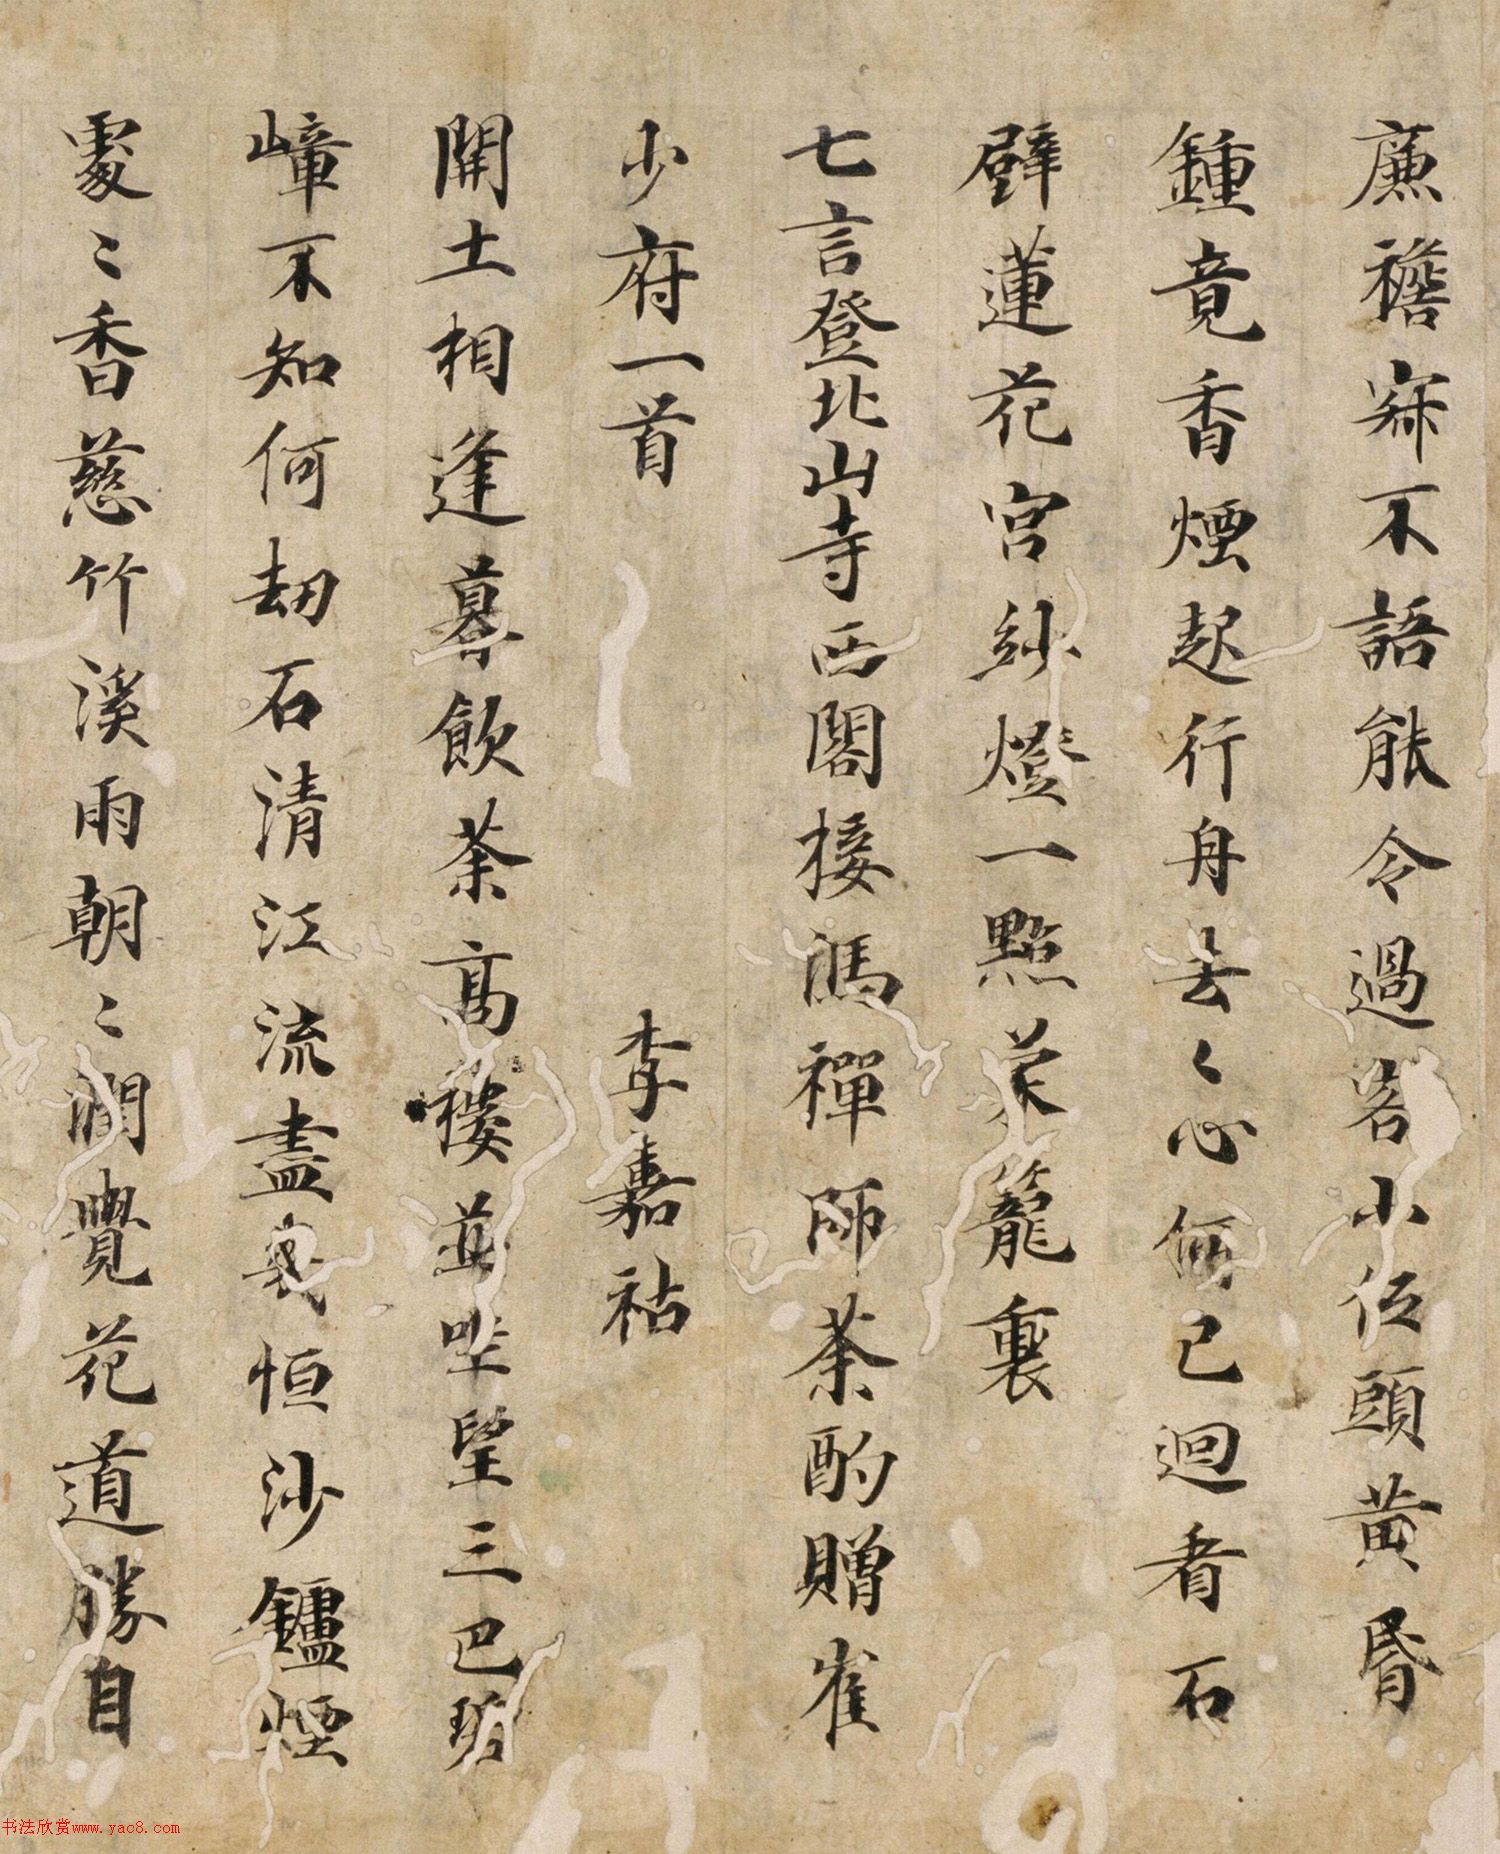 廉襜寂不語能令過客小低頭黄昏
鍾竟香煙起行舟去〻心何已迴看石
壁蓮花宮紗燈一點籠裏
七言登北山寺西閣樓馮禪師茶酌贈崔
少府一首 李嘉祐
開土相逢暮飲茶高樓並坐望三巴碧
嶂不知何劫石清江流盡幾恒沙鑪煙
處〻香慈竹溪雨朝〻潤覺花道勝自
书法欣赏www.yac8.com